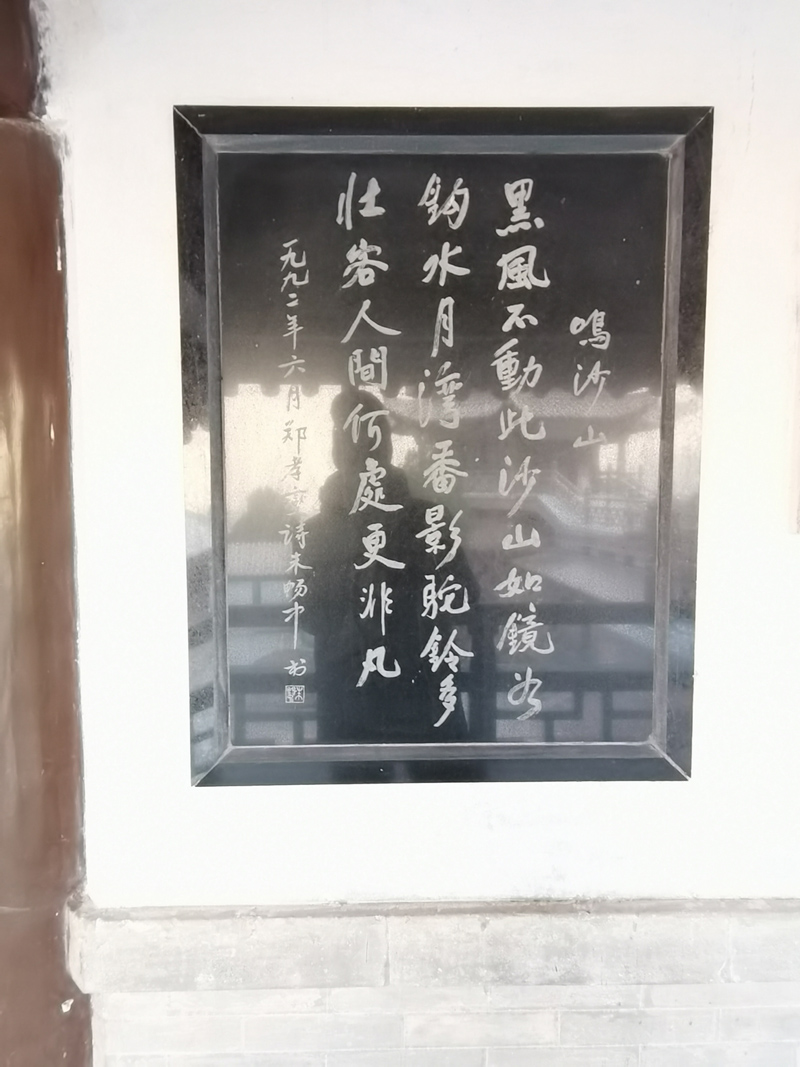 鳴沙山
黑風不動此沙山如鏡
鈎水月湾番影駝鈴多
壮客人間何處更非凡
一九九二年六月郑孝燮詩朱畅中书